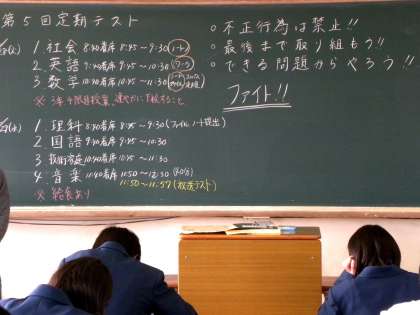 第5回定期テスト
1 社会 8:40着席 8:45〜9:30 ノート
2 英語 9:40着席 9:45〜10:30 ワーク
3 数学 10:40着席 10:45〜11:30 ノート
1. 理科 8:40着席 8:45〜9:30 (ファイル、ノート提出)
2. 国語 9:40着席 9:45〜10:30
3. 技術家庭 10:40着席 10:45〜11:30
4 音楽 11:40着席 11:50〜12:30
11:50〜11:57(放送テスト)
※ 給食あり
○ 不正行為は禁止!!
○ 最後まで取り組もう!!
○ できる問題からやろう!!
ファイト!!